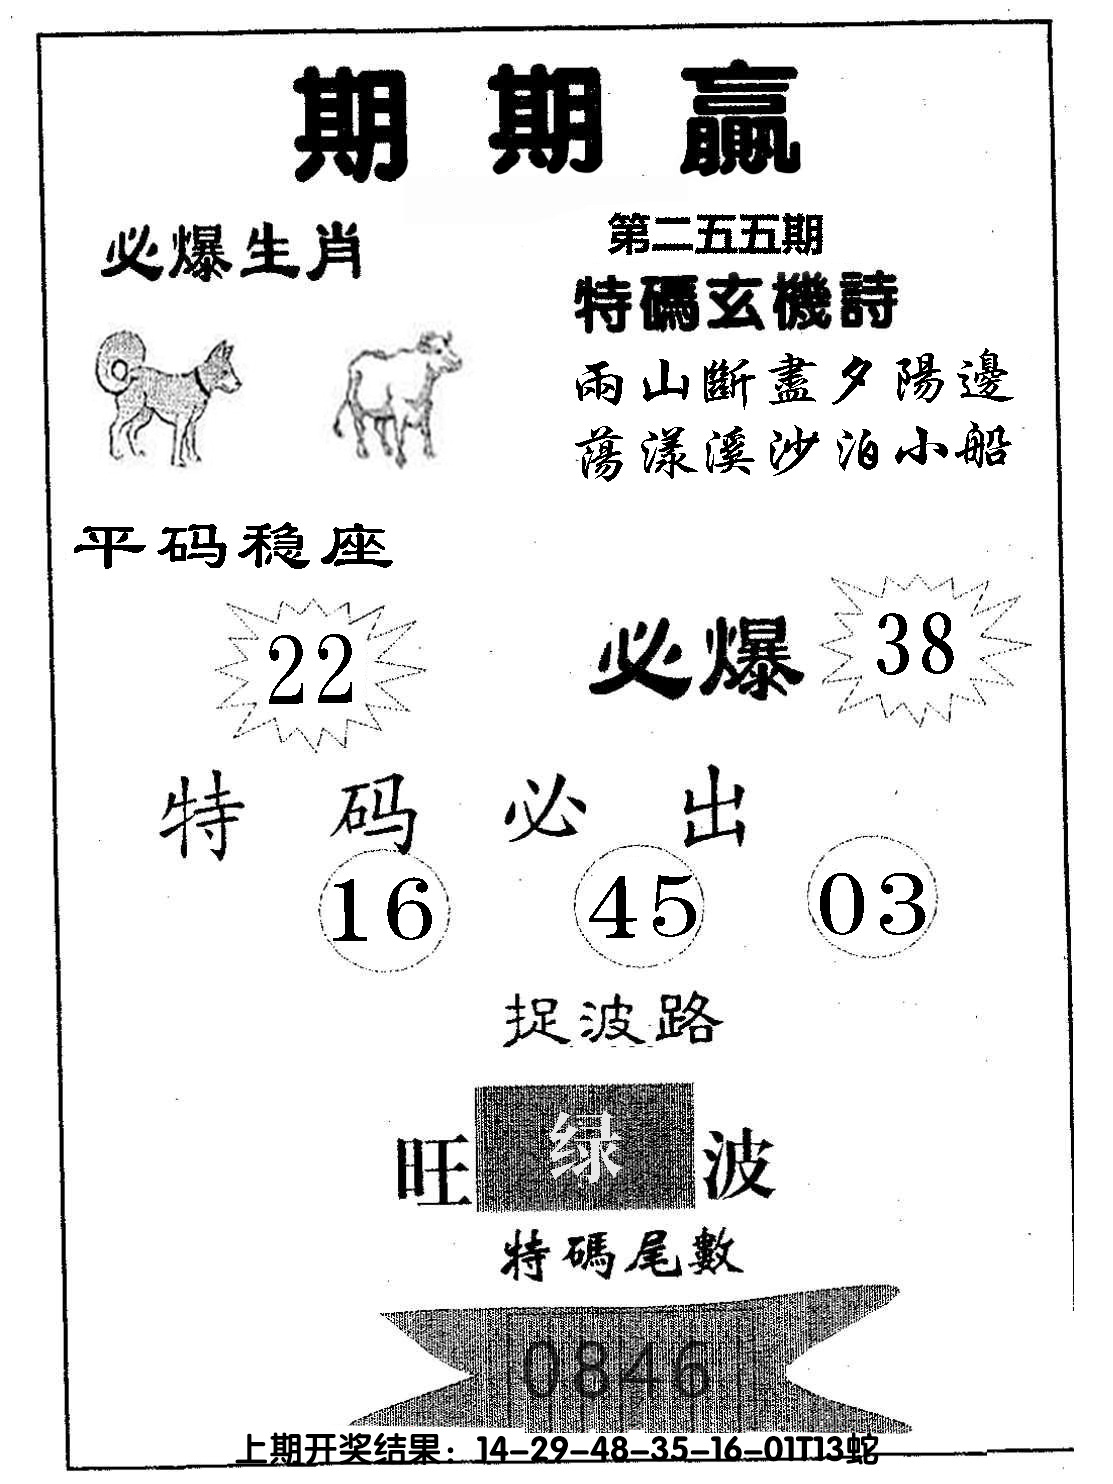 期期贏
第二五五期
必爆生肖
特碼玄機詩
兩山斷盡夕陽邊
蕩漾溪沙泊小船
平码稳座
22
必爆 38
特码必出
16 45 03
捉波路
旺 绿 波
特碼尾數
0846
上期开奖结果：14-29-48-35-16-01T13蛇